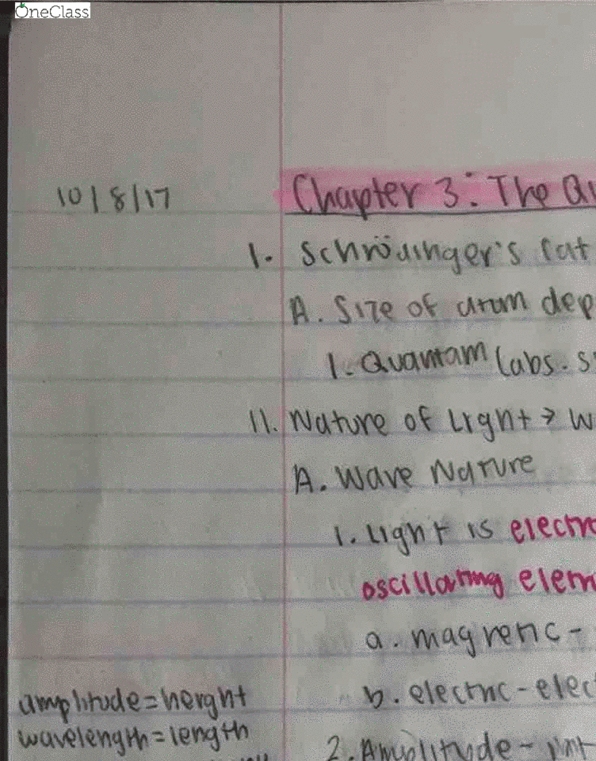 OneClass
10/8/17
Chapter 3: The
I. Schrödinger's Cat
A. Size of atom dep
1. Quantam (abs. s
II. Nature of Light → W
A. Wave Nature
1. Light is electro
oscillating elem
a. magnetic -
b. electric - elec
amplitude = height
wavelength = length
2. Amplitude -